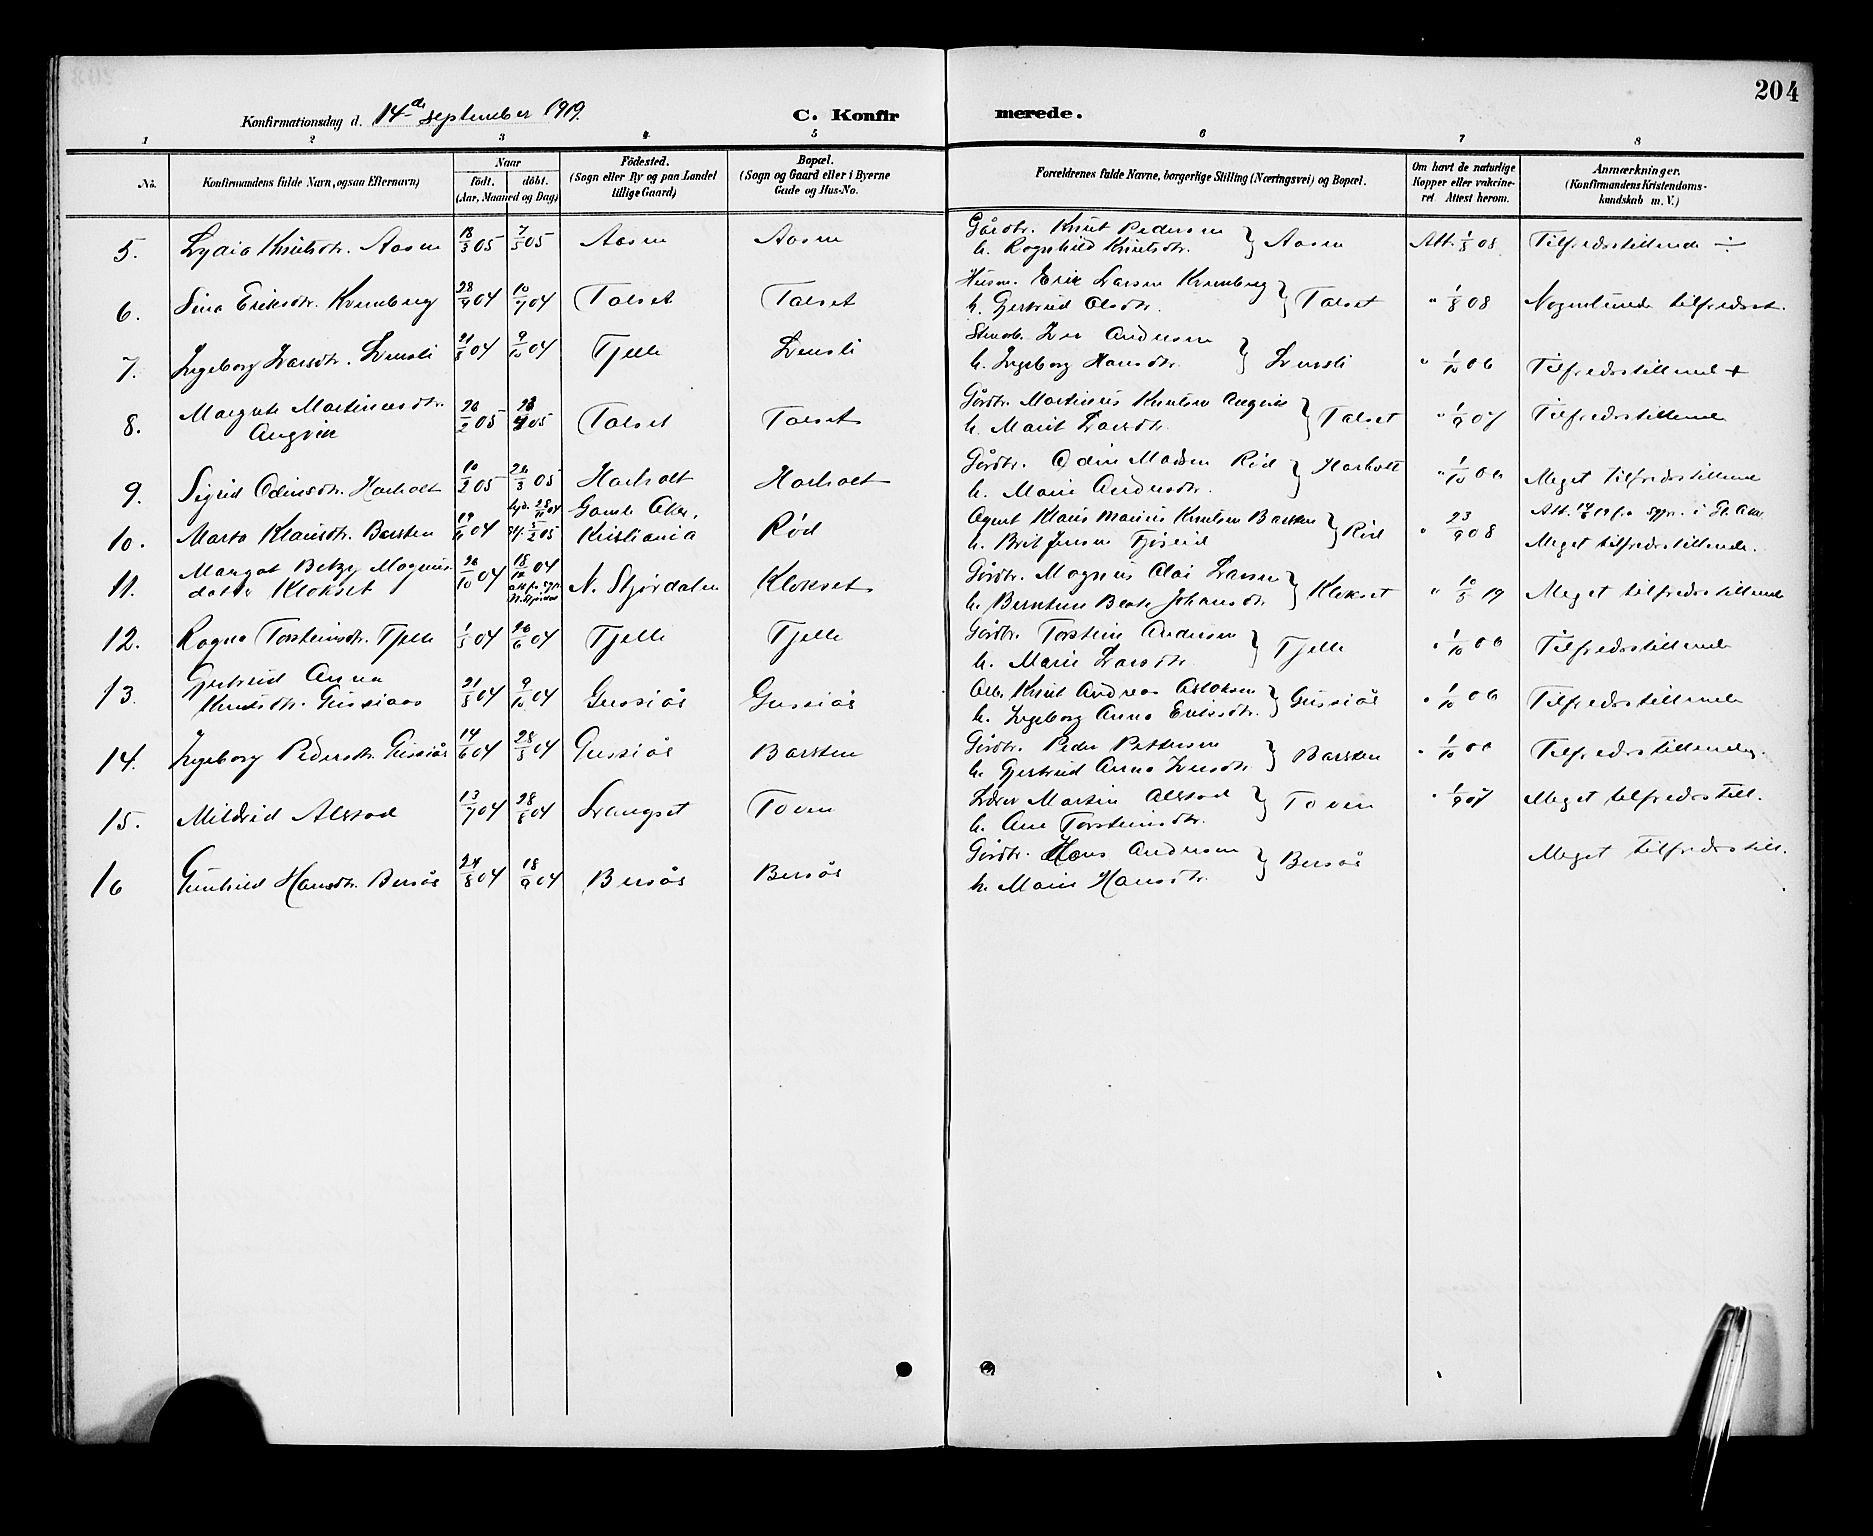 204
Konfirmationsdag d. 14de september 1919.
C. Konfirmerede.
1 2 3 4 5 6 7 8
No.
Konfirmandens fulde Navn, ogsaa Efternavn)
Naar
födt. döbt.
(Aar, Maaned og Dag)
Födested.
(Sogn eller By og paa Landet
tillige Gaard)
Bopæl.
(Sogn og Gaard eller i Byerne
Gade og Hus-No.
Forældrenes fulde Navne, borgerlige Stilling (Næringsvei) og Bopæl.
Om havt de naturlige
Kopper eller vakcine-
ret. Attest herom.
Anmærkninger.
(Konfirmandens Kristendoms-
kundskab m. V.)
5. Lydia Knutsdtr. Aasen 18/3 05 7/5 05 Aasen Aasen Gårdbr. Knut Pedersen
h. Ragnhild Knutsdtr. } Aasen Att. 1/8 08 Tilfredsstillende ÷
6. Sina Eriksdtr. Kvernberg 28/4 04 10/7 04 Talset Talset Husm. Erik Larsen Kvernberg
h. Gjertrud Olsdtr. } Talset " 1/8 08 Nogenlunde tilfredsst.
7. Ingeborg Larsdtr. Lensli 21/8 04 9/10 04 Tjelle Lensli Lar Andersen
h. Ingeborg Hansdtr. } Lensli " 1/10 06 Tilfredsstillende +
8. Margrete Martinusdtr.
Angvik 26/2 05 23/4 05 Talset Talset Gårdbr. Martinus Knutsen Angvik
h. Marit Larsdtr. } Talset " 1/9 07 Tilfredsstillende
9. Sigrid Odinsdtr. Harholt 10/2 05 26/3 05 Harholt Harholt Gårdbr. Odin Madsen Rød
h. Marie Andersdtr. } Harholt " 1/10 06 Meget tilfredsstillende
10. Marta Klausdtr. Barsten 19/6 04 28/11 04 5/2 05 Gamle Aker,
Kristiania Rød Agent Klaus Marius Knutsen Barsten
h. Brit Jensen Tjøseid } Rød " 23/9 08 Meget tilfredsstillende.
11. Margot Betzy Magnus-
datter Klokset 26/10 04 18/12 04 N. Stjørdalen Klokset Gårdbr. Magnus Olai Larsen
h. Berntine Beate Johansdtr } Klokset " 10/8 19 Meget tilfredsstillende
12. Ragna Torsteinsdtr. Tjelle 1/5 04 26/6 04 Tjelle Tjelle Gårdbr. Torstein Andersen
h. Marie Larsdtr. } Tjelle " 1/10 06 Tilfredsstillende
13. Gjertrud Anna
Knutsdtr. Gussiaas 21/8 04 9/10 04 Gussiås Gussiås Arb. Knut Andreas Aslaksen
h. Ingeborg Anna Eriksdtr. } Gussiås " 1/10 06 Tilfredsstillende
14. Ingeborg Pedersdtr. Gussiås 14/6 04 28/8 04 Gussiås Barsten Gårdbr. Peder Pettersen
h. Gjertrud Anna Larsdtr } Barsten " 1/10 06 Tilfredsstillende.
15. Mildrid Alstad 13/7 04 28/8 04 Langset Toven Lærer Martin Alstad
h. Ane Torsteinsdtr. } Toven " 1/9 07 Meget tilfredsstill.
16 Gunhild Hansdtr. Bersås 24/8 04 18/9 04 Bersås Bersås Gårdbr. Hans Andersen
h. Marie Hansdtr. } Bersås Meget tilfredsstill.